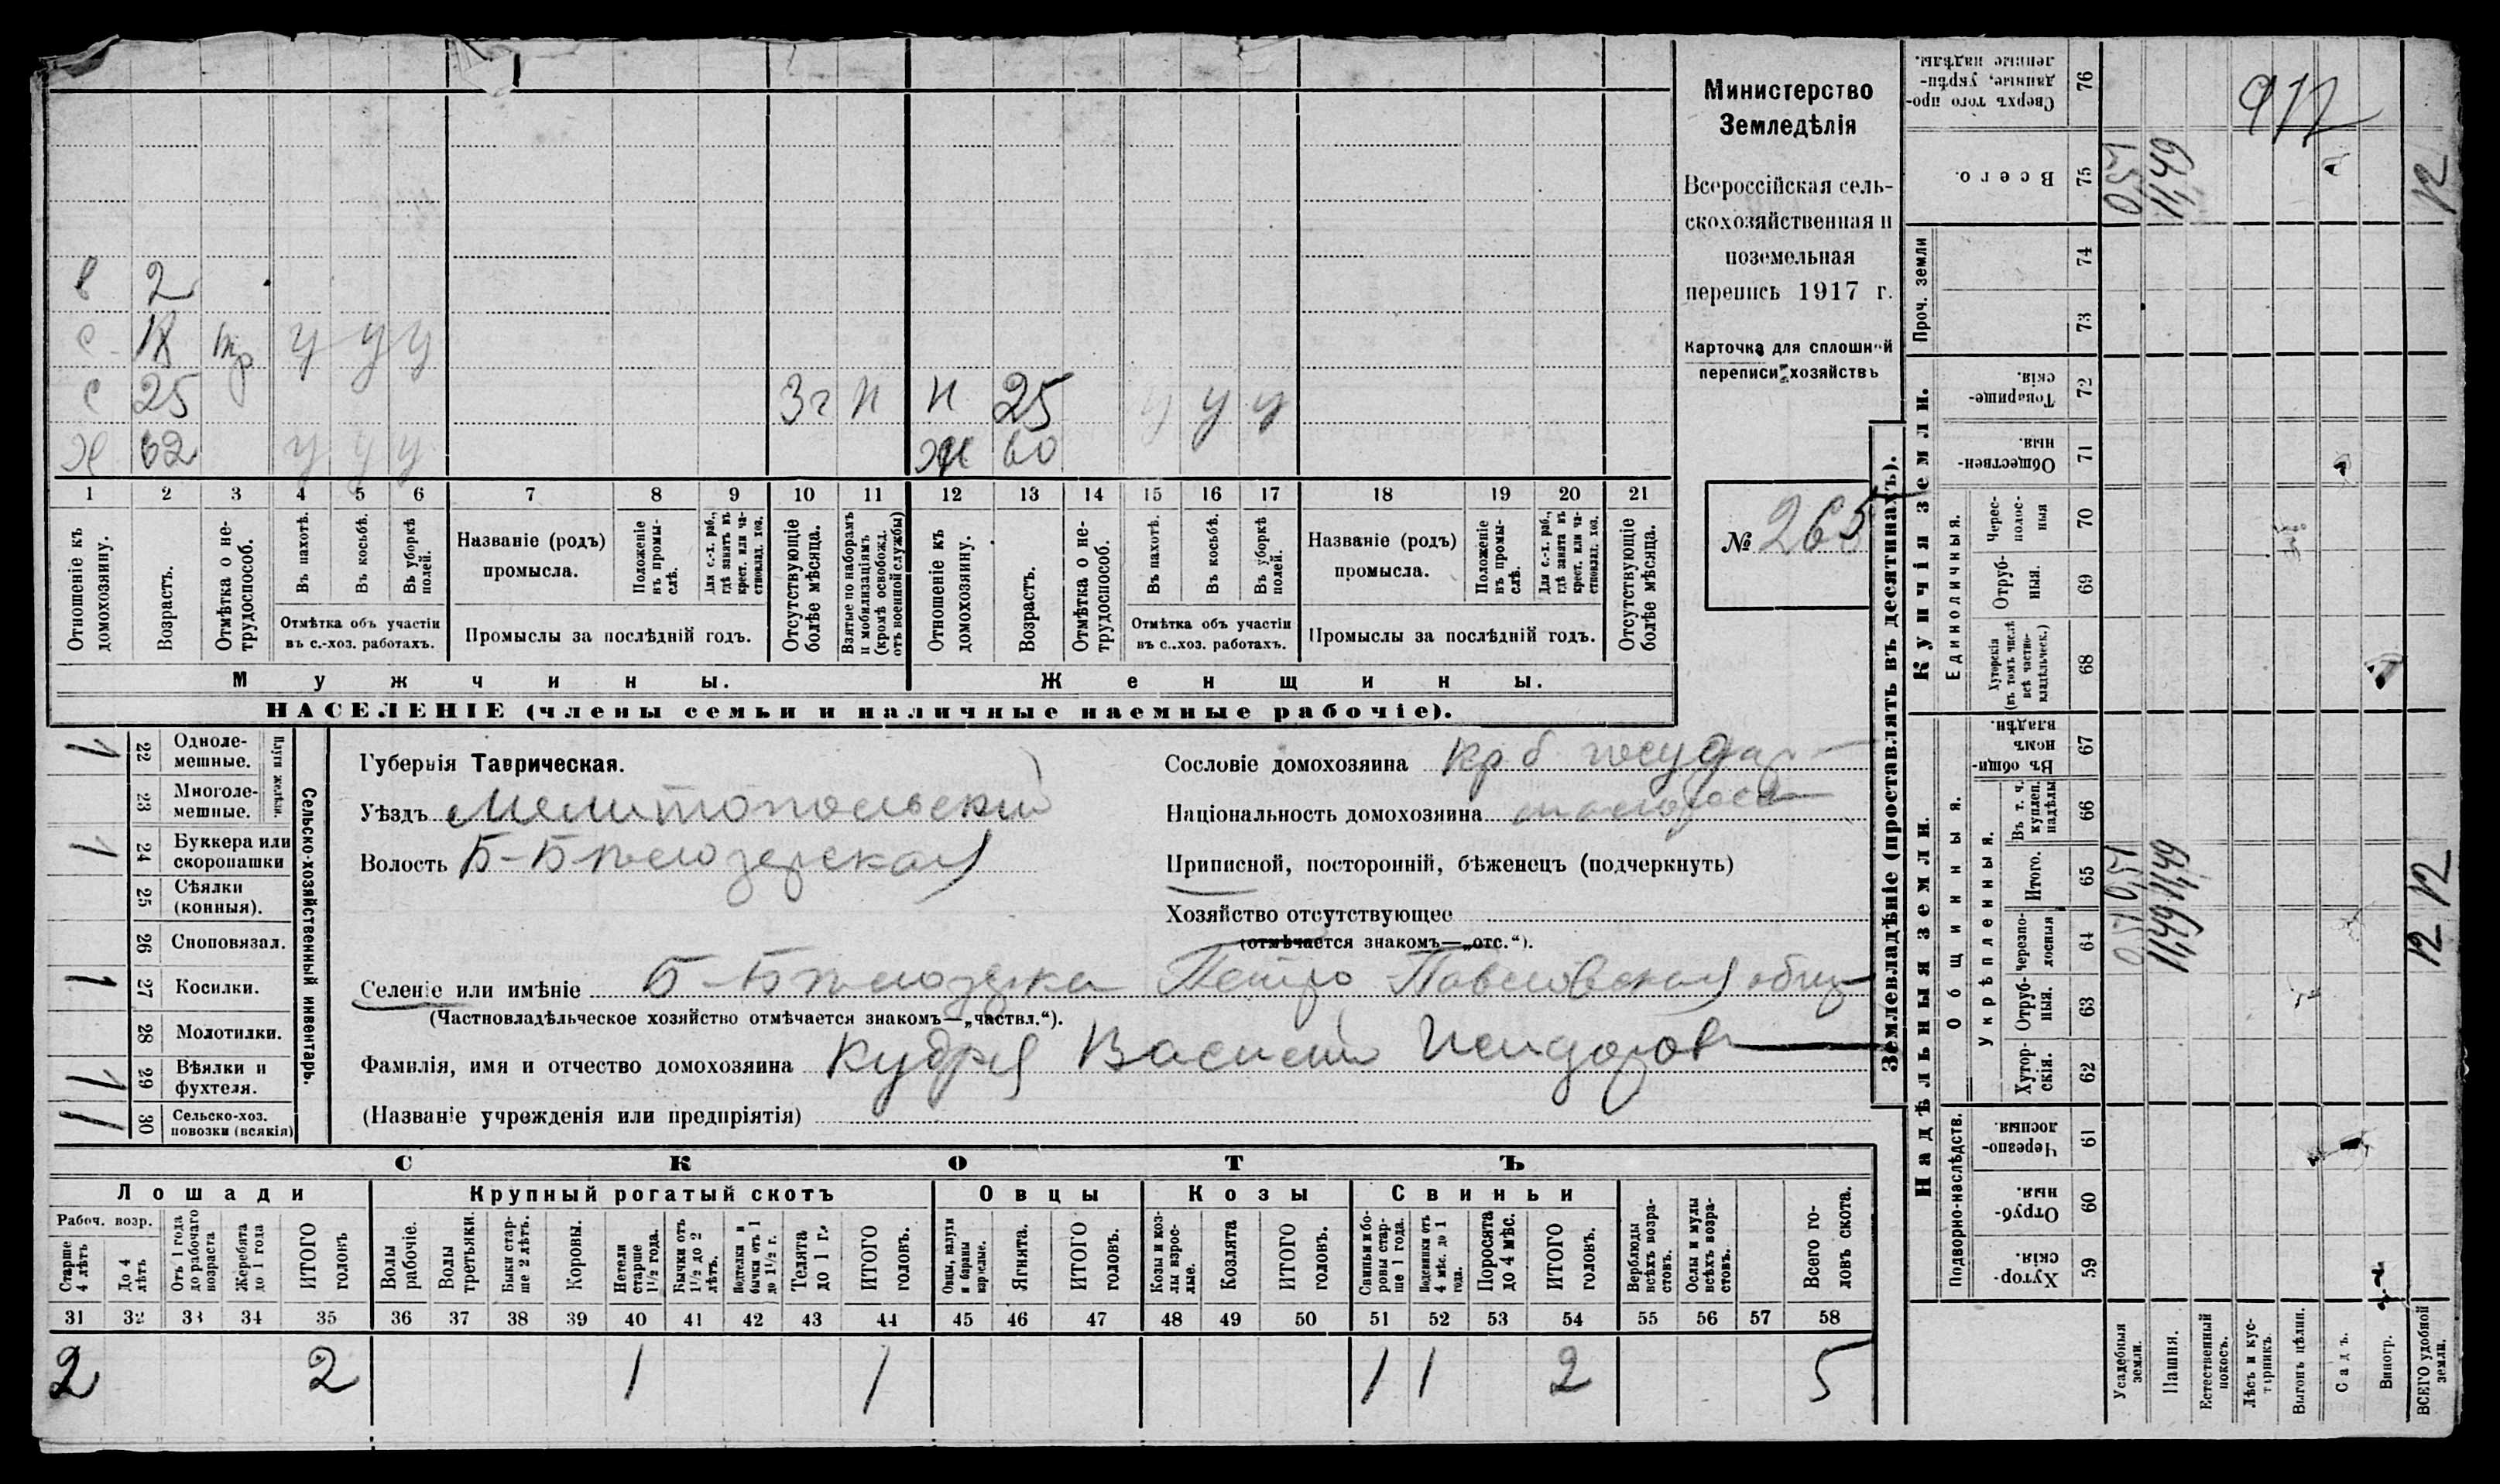 Министерство
Земледѣлія
Всероссійская сель-
скохозяйственная и
поземельная
перепись 1917 г.
Карточка для сплошной
переписи хозяйствъ
№ 265
в 2
с 18 нр у у у
с 25 3г н н 25 у у у
х 62 у у у жн 60
1 2 3 4 5 6 7 8 9 10 11 12 13 14 15 16 17 18 19 20 21
Отношеніе къ домохозяину.
Возрастъ.
Отмѣтка о не-трудоспособ.
Въ пахотѣ.
Въ косьбѣ.
Въ уборкѣ полей.
Отмѣтка объ участіи
въ с.-хоз. работахъ.
Названіе (родъ)
промысла.
Положеніе въ промы-слѣ.
Для с.-х. раб., гдѣ занятъ въ крест. или ча-стновлад. хоз.
Промыслы за послѣдній годъ.
Отсутствующіе болѣе мѣсяца.
Взятые по наборамъ и мобилизаціямъ (кромѣ освобожд. отъ военной службы)
Отношеніе къ домохозяину.
Возрастъ.
Отмѣтка о не-трудоспособ.
Въ пахотѣ.
Въ косьбѣ.
Въ уборкѣ полей.
Отмѣтка объ участіи
въ с..хоз. работахъ.
Названіе (родъ)
промысла.
Положеніе въ промы-слѣ.
Для с.-х. раб., гдѣ занята въ крест. или ча-стновлад. хоз.
Промыслы за послѣдній годъ.
Отсутствующіе болѣе мѣсяца.
Мужчины.
Женщины.
НАСЕЛЕНІЕ (члены семьи и наличные наемные рабочіе).
Сельско-хозяйственный инвентарь.
Плуги желѣзн.
1 22 Одноле-мешные.
23 Многоле-мешные.
1 24 Буккера или скоропашки
25 Сѣялки (конныя).
26 Сноповязал.
1 27 Косилки.
28 Молотилки.
1 29 Вѣялки и фухтеля.
1 30 Сельско-хоз. повозки (всякія)
Губернія Таврическая.
Уѣздъ Мелитопольский
Волость Б-Бѣлозерская
Сословіе домохозяина кр б государ
Національность домохозяина малоросс
Приписной, посторонній, бѣженецъ (подчеркнуть)
Хозяйство отсутствующее
(отмѣчается знакомъ—„отс.“).
Селеніе или имѣніе Б-Бѣлозерка Петро Павловская общ
(Частновладѣльческое хозяйство отмѣчается знакомъ—„частвл.“).
Фамилія, имя и отчество домохозяина Кудря Василій Исидоров
(Названіе учрежденія или предпріятія)
СКОТЪ
Лошади
Крупный рогатый скотъ
Овцы
Козы
Свиньи
Рабоч. возр.
Старше 4 лѣтъ
До 4 лѣтъ
Отъ 1 года до рабочаго возраста
Жеребята до 1 года
ИТОГО головъ
Волы рабочіе.
Волы третьяки.
Быки стар-ше 2 лѣтъ.
Коровы.
Нетели старше 1½ года.
Бычки отъ 1½ до 2 лѣтъ.
Подтелки и бычки отъ 1 до 1½ г.
Телята до 1 г.
ИТОГО головъ.
Овцы, валухи и бараны взрослые.
Ягнята.
ИТОГО головъ.
Козы и коз-лы взрос-лые.
Козлята
ИТОГО головъ.
Свиньи и бо-ровы стар-ше 1 года.
Подсвинки отъ 4 мѣс. до 1 года.
Поросята до 4 мѣс.
ИТОГО головъ.
Верблюды всѣхъ возра-стовъ.
Ослы и мулы всѣхъ возра-стовъ.
Всего го-ловъ скота.
31 32 33 34 35 36 37 38 39 40 41 42 43 44 45 46 47 48 49 50 51 52 53 54 55 56 57 58
2 2 1 1 1 1 2 5
Землевладѣніе (проставлять въ десятинахъ).
Надѣльныя земли.
Купчія земли.
Проч. земли
Подворно-наслѣдств.
Общинныя.
Укрѣпленныя.
Единоличныя.
Хутор-скія. 59
Отруб-ныя. 60
Черезпо-лосныя. 61
Хутор-скія. 62
Отруб-ныя. 63
Черезпо-лосныя 64
Итого. 65
Въ т. ч. куплен. надѣлы 66
Въ общи-номъ владѣн. 67
Хуторскія (въ томъ числѣ всѣ частно-владѣльческ.) 68
Отруб-ныя. 69
Черес-полос-ныя 70
Обществен-ныя. 71
Товарище-скія. 72
73
74
Всего. 75
Сверхъ того про-данные, укрѣп-ленные надѣлы. 76
Усадебныя земли. 0,51 0,51 0,51
Пашня. 11,49 11,49 11,49
Естественный покосъ.
Лѣсъ и кус-тарникъ.
Выгонъ цѣлин.
Садъ.
Виногр.
ВСЕГО удобной земли. 12 12 12